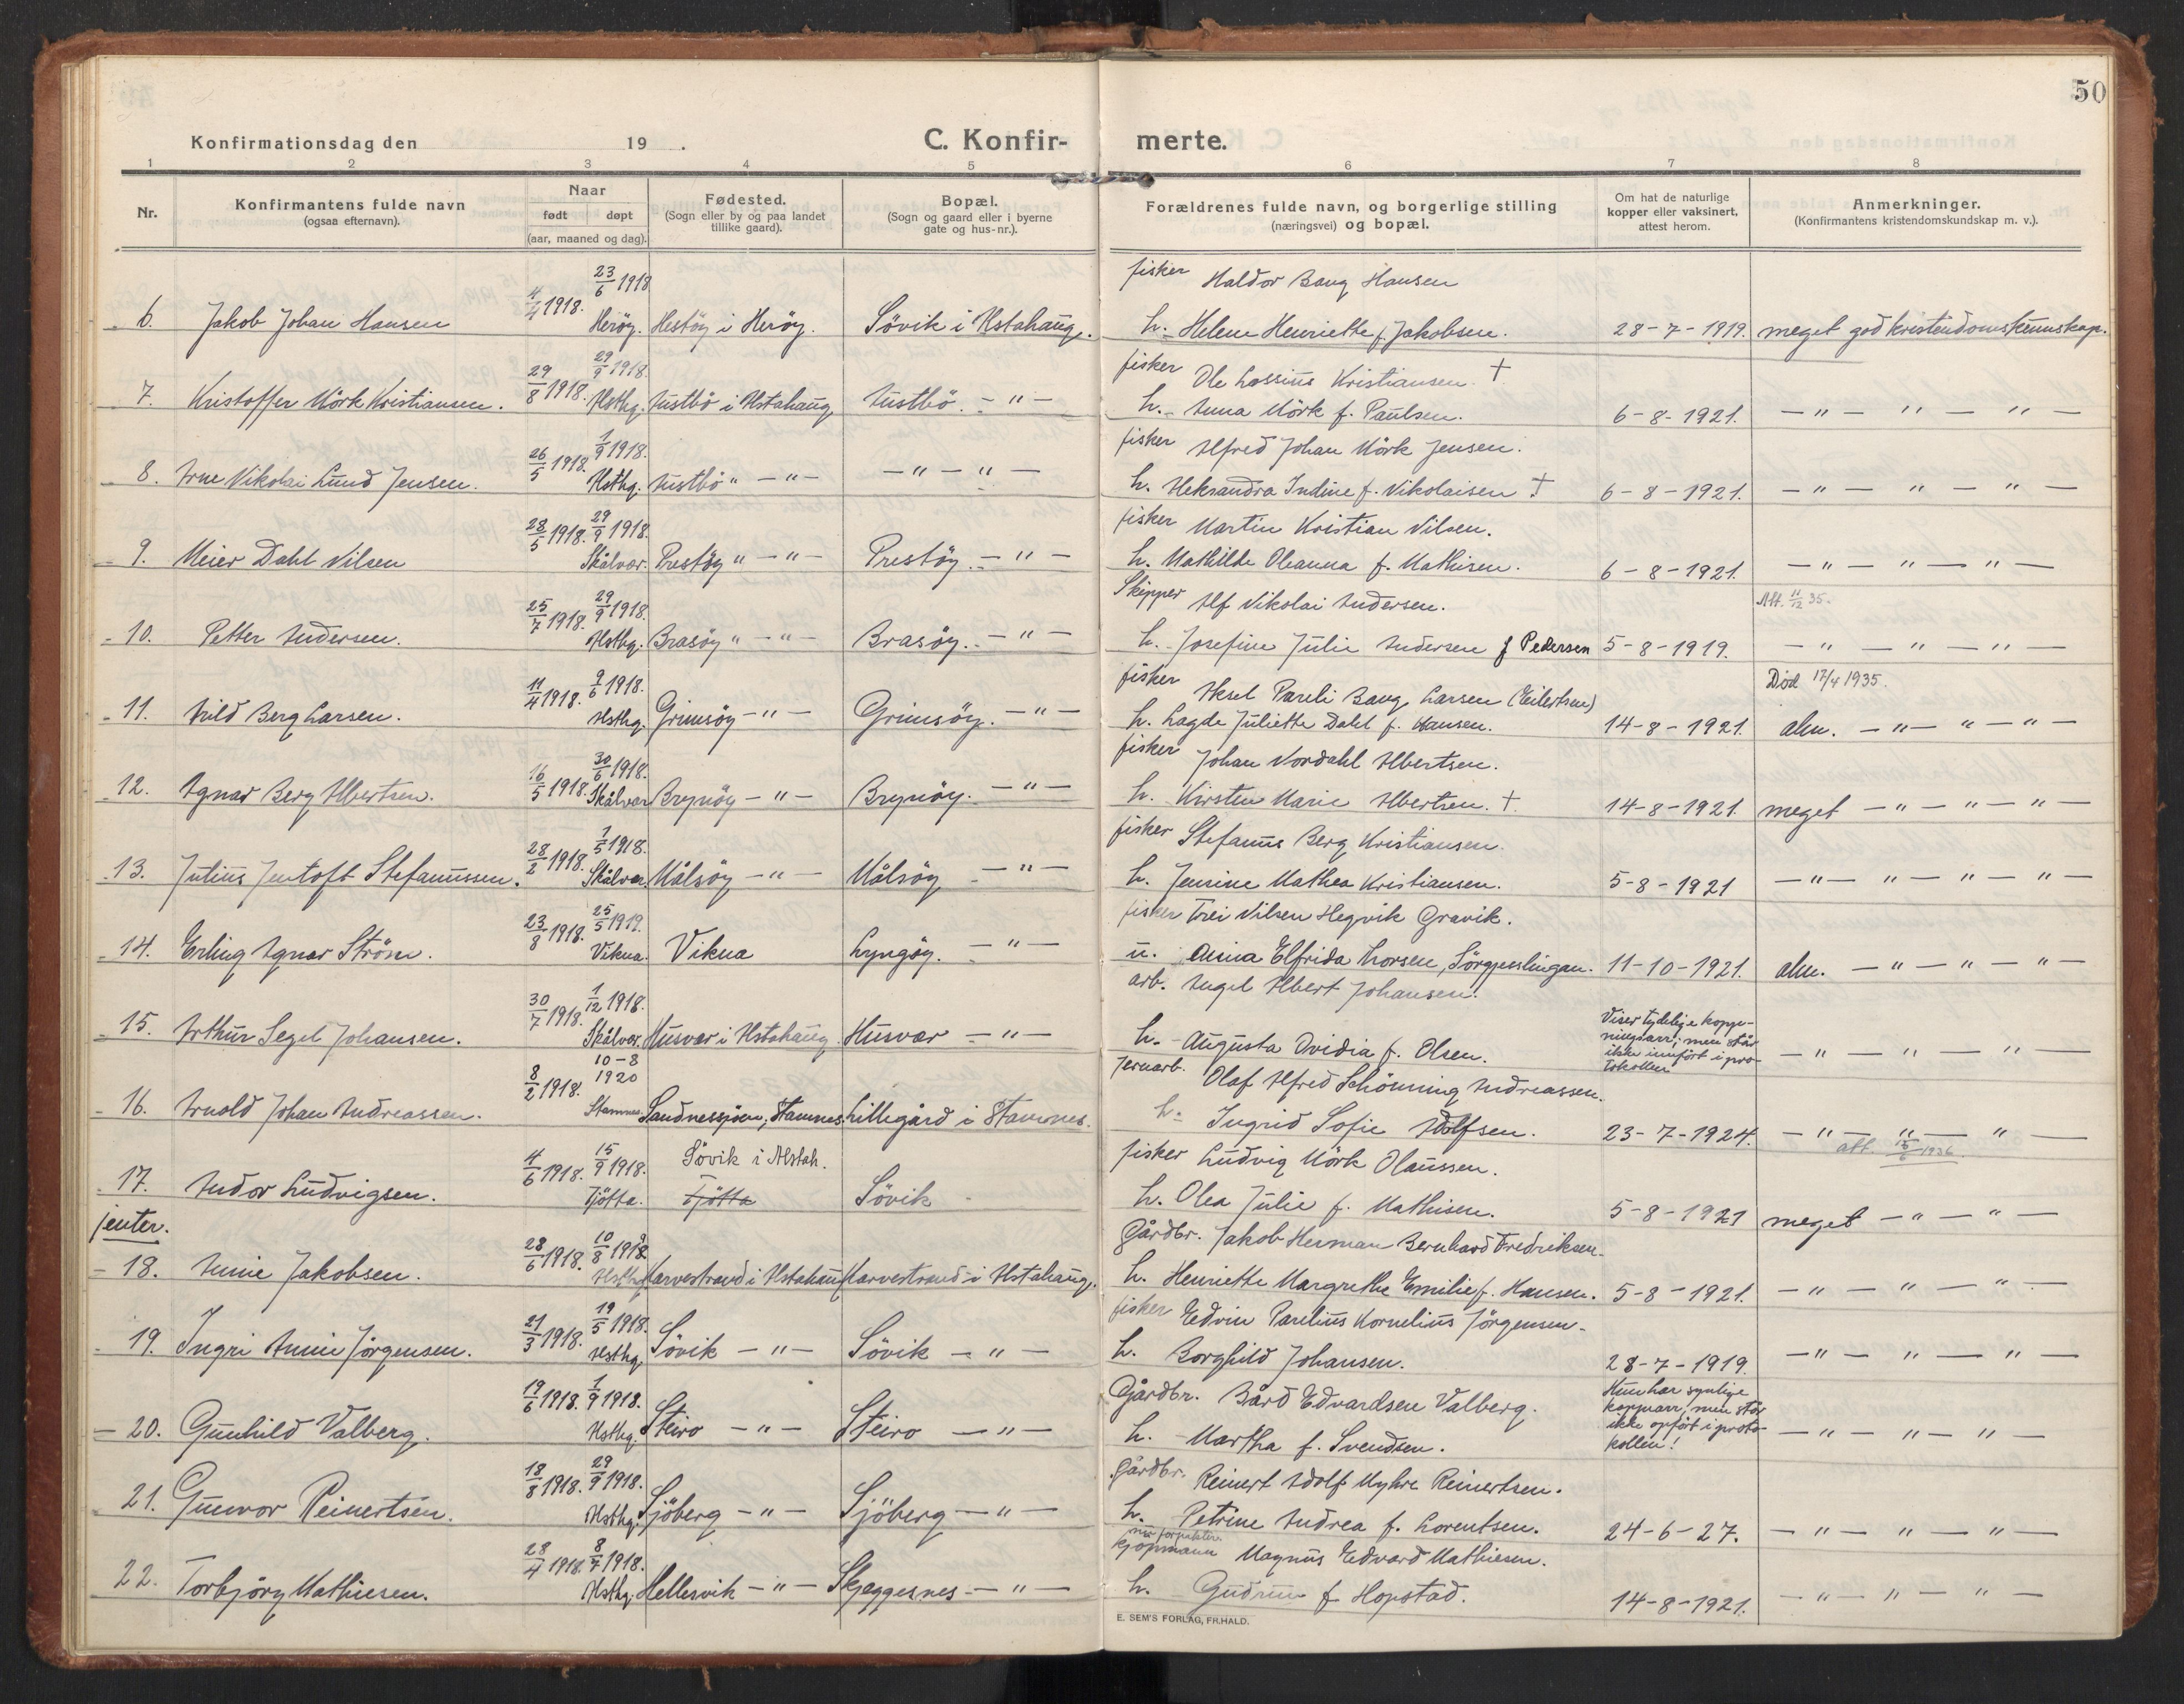 50
Konfirmationsdag den 19 . C. Konfirmerte.
1 2 3 4 5 6 7 8
Nr.
Konfirmantens fulde navn
(ogsaa efternavn).
Naar
født døpt
(aar, maaned og dag).
Fødested.
(Sogn eller by og paa landet
tillike gaard).
Bopæl.
(Sogn og gaard eller i byerne
gate og hus-nr.).
Forældrenes fulde navn, og borgerlige stilling
(næringsvei) og bopæl.
Om hat de naturlige
kopper eller vaksinert,
attest herom.
Anmerkninger.
(Konfirmantens kristendomskundskap m. v.).
23/6 1918 fisker Haldor Bang Hansen
6. Jakob Johan Hansen 4/4 1918. Herøy. Hestøy i Herøy. Søvik i Alstahaug. h. Helene Henriette f. Jakobsen. 28-7-1919. meget god kristendomskunnskap.
29/9 1918. fisker Ole Lossius Kristiansen. †
7. Kristoffer Mörk Kristiansen. 29/8 1918. Alsthg. Austbö i Alstahaug Austbö. - " - h. Anna Mörk f. Paulsen. 6-8-1921. - " - " - " -
1/9 1918. fisker Alfred Johan Mörk Jensen.
8. Arne Nikolai Lund Jensen. 26/5 1918. Alsthg. Austbö " - " - - " - " - h. Aleksandra Indine f. Nikolaisen † 6-8-1921. - " - " - " -
29/9 1918. fisker Martin Kristian Nilsen.
9. Meier Dahl Nilsen 28/5 1918. Skålvær. Prestöy " - " - Prestöy. - " - h. Mathilde Oleanna f. Mathisen. 6-8-1921. - " - " - " -
29/9 1918. Skipper Alf Nikolai Andersen. Att. 11/12 35.
10. Petter Andersen. 25/7 1918. Alsthg. Brasöy " - " - Brasöy. - " - h. Josefine Julie Andersen f Pedersen 5-8-1919. - " - " - " -
9/6 1918. fisker Aksel Pareli Bang Larsen (Eilertsen) Död 17/4 1935.
11. Arild Berg Larsen. 11/4 1918. Alsthg. Grimsöy - " - Grimsöy. - " - h. Lagde Juliette Dahl f. Hansen. 14-8-1921. alm. - " - " - " -
30/6 1918. fisker Johan Nordahl Albertsen.
12. Agnar Berg Albertsen. 16/5 1918. Skålvær Brynöy - " - Brynöy. - " - h. Kirsten Marie Albertsen. †. 14-8-1921. meget - " - " - " -
7/5 1918. fisker Stefanus Berg Kristiansen.
13. Julius Jentoft Stefanussen. 28/2 1918. Skålvær. Målsöy - " - Målsöy - " - h. Jensine Mathea Kristiansen. 5-8-1921 - " - " - " - " -
25/5 1919. fisker Trei Nilsen Hegvik Gravik.
14. Erling Agnar Ström. 23/8 1918. Vikna. Vikna Lyngöy. - " - u. Anna Elfrida Larsen, Sörgjæslingan. 11-10-1921. alm. - " - " - " -
1/12 1918. arb. Angel Albert Johansen.
15. Arthur Segel Johansen. 30/7 1918. Skålvær. Husvær i Alstahaug. Husvær - " - h. Augusta Ovidia f. Olsen. Viser tydelige koppe-
ningsarr, men står
ikke innført i pro-
tokollen - " - " - " -
10-8
1920 Jernarb. Olaf Alfred Schönning Andreassen.
16. Arnold Johan Andreassen. 8/2 1918. Stamnes. Sandnessjöen, Stamnes. Lillegård i Stamnes. h. Ingrid Sofie Adolfsen. 23-7-1924. - " - " - " -
15/9 1918. Søvik i Alstah. fisker Ludvig Mörk Olaussen. att. 15/6 1936.
17. Andor Ludvigsen. 4/6 1918. Tjötta. Tjötta Søvik h. Olea Julie f. Mathisen. 5-8-1921 meget - " - " -
jenter.
10/8 1918 Gårdbr. Jakob Herman Bernhard Fredriksen.
18. Annie Jakobsen. 28/6 1918. Alsthg. Karvestrand i Alstahaug Karvestrand i Alstahaug. h. Henriette Margrethe Emilie f. Hansen. 5-8-1921. - " - " - " -
19/5 1918. fisker Edvin Parelius Kornelius Jörgensen.
19. Ingri Annie Jörgensen. 21/3 1918. Alsthg. Søvik - " - Søvik - " - h. Borghild Johansen. 28-7-1919. - " - " - " -
1/9 1918. Gårdbr. Bård Edvardsen Valberg.
20. Gunhild Valberg. 19/6 1918. Alsthg. Steiro - " - Steiro - " - h. Martha f. Svendsen. Hun har synlige
kopparr, men står
ikke opfört i proto-
kollen! - " - " - " -
29/9 1918. Gårdbr. Reinert Adolf Myhre Reinertsen.
21. Gunvor Reinertsen. 18/8 1918. Alsthg. Sjöberg - " - Sjöberg - " - h. Petrine Andrea f. Lorentsen. 24-6-27. - " - " - " -
8/7 1918. kjöpmann Magnus Edvard Mathiesen.
22. Torbjörg Mathiesen. 28/4 1918. Alsthg. Hellesvik - " - Skjeggesnes - " - h. Gudrun f Hopstad. 14-8-1921. - " - " - " -
E. SEM'S FORLAG, FR.HALD.